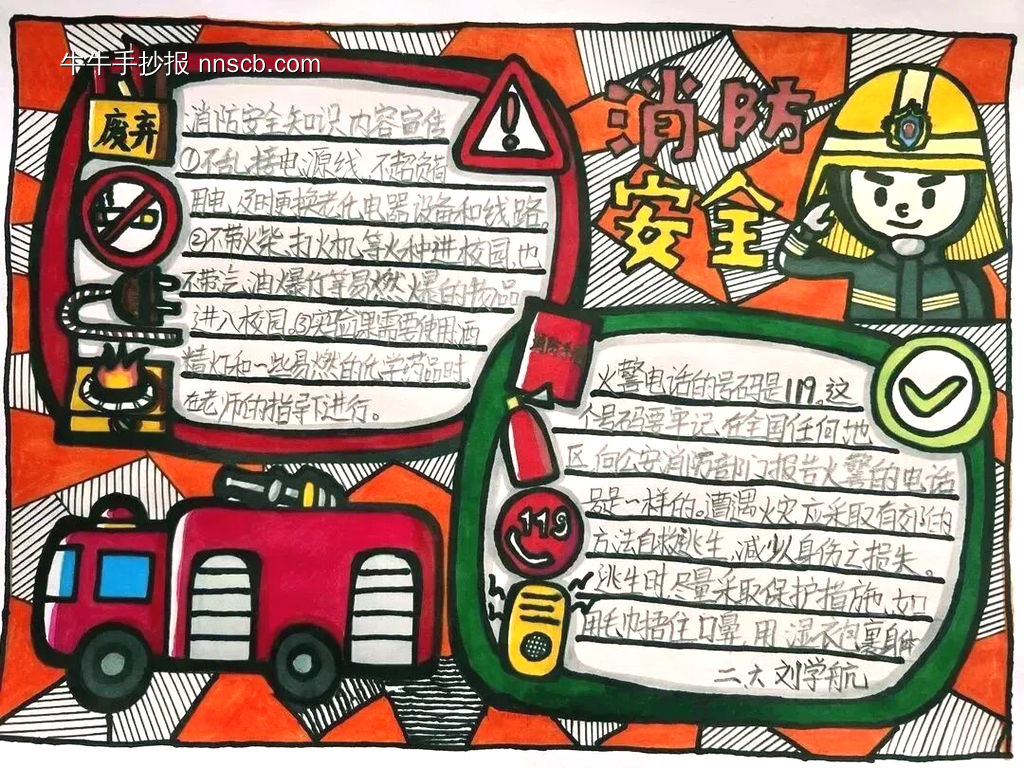 牛牛手抄报 nnscb.com
消防
安全
废弃
消防安全知识内容宣传
①不乱接电源线、不超负荷
用电,及时更换老化电器设备和线路。
②不带火柴、打火机、等火种进校园、也
不带汽油、爆竹等易燃、爆的物品
进入校园。③实验课需要使用酒
精灯和一些易燃的化学药品时
在老师的指导下进行。
火警电话的号码是119。这
个号码要牢记、在全国任何地
区、向公安消防部门报告火警的电话
号是一样的。遭遇火灾应采取有效的
方法自救逃生、减少人身伤亡损失。
逃生时、尽量采取保护措施、如
用毛巾捂住口鼻、用湿衣包裹身体
二、六 刘学航
119